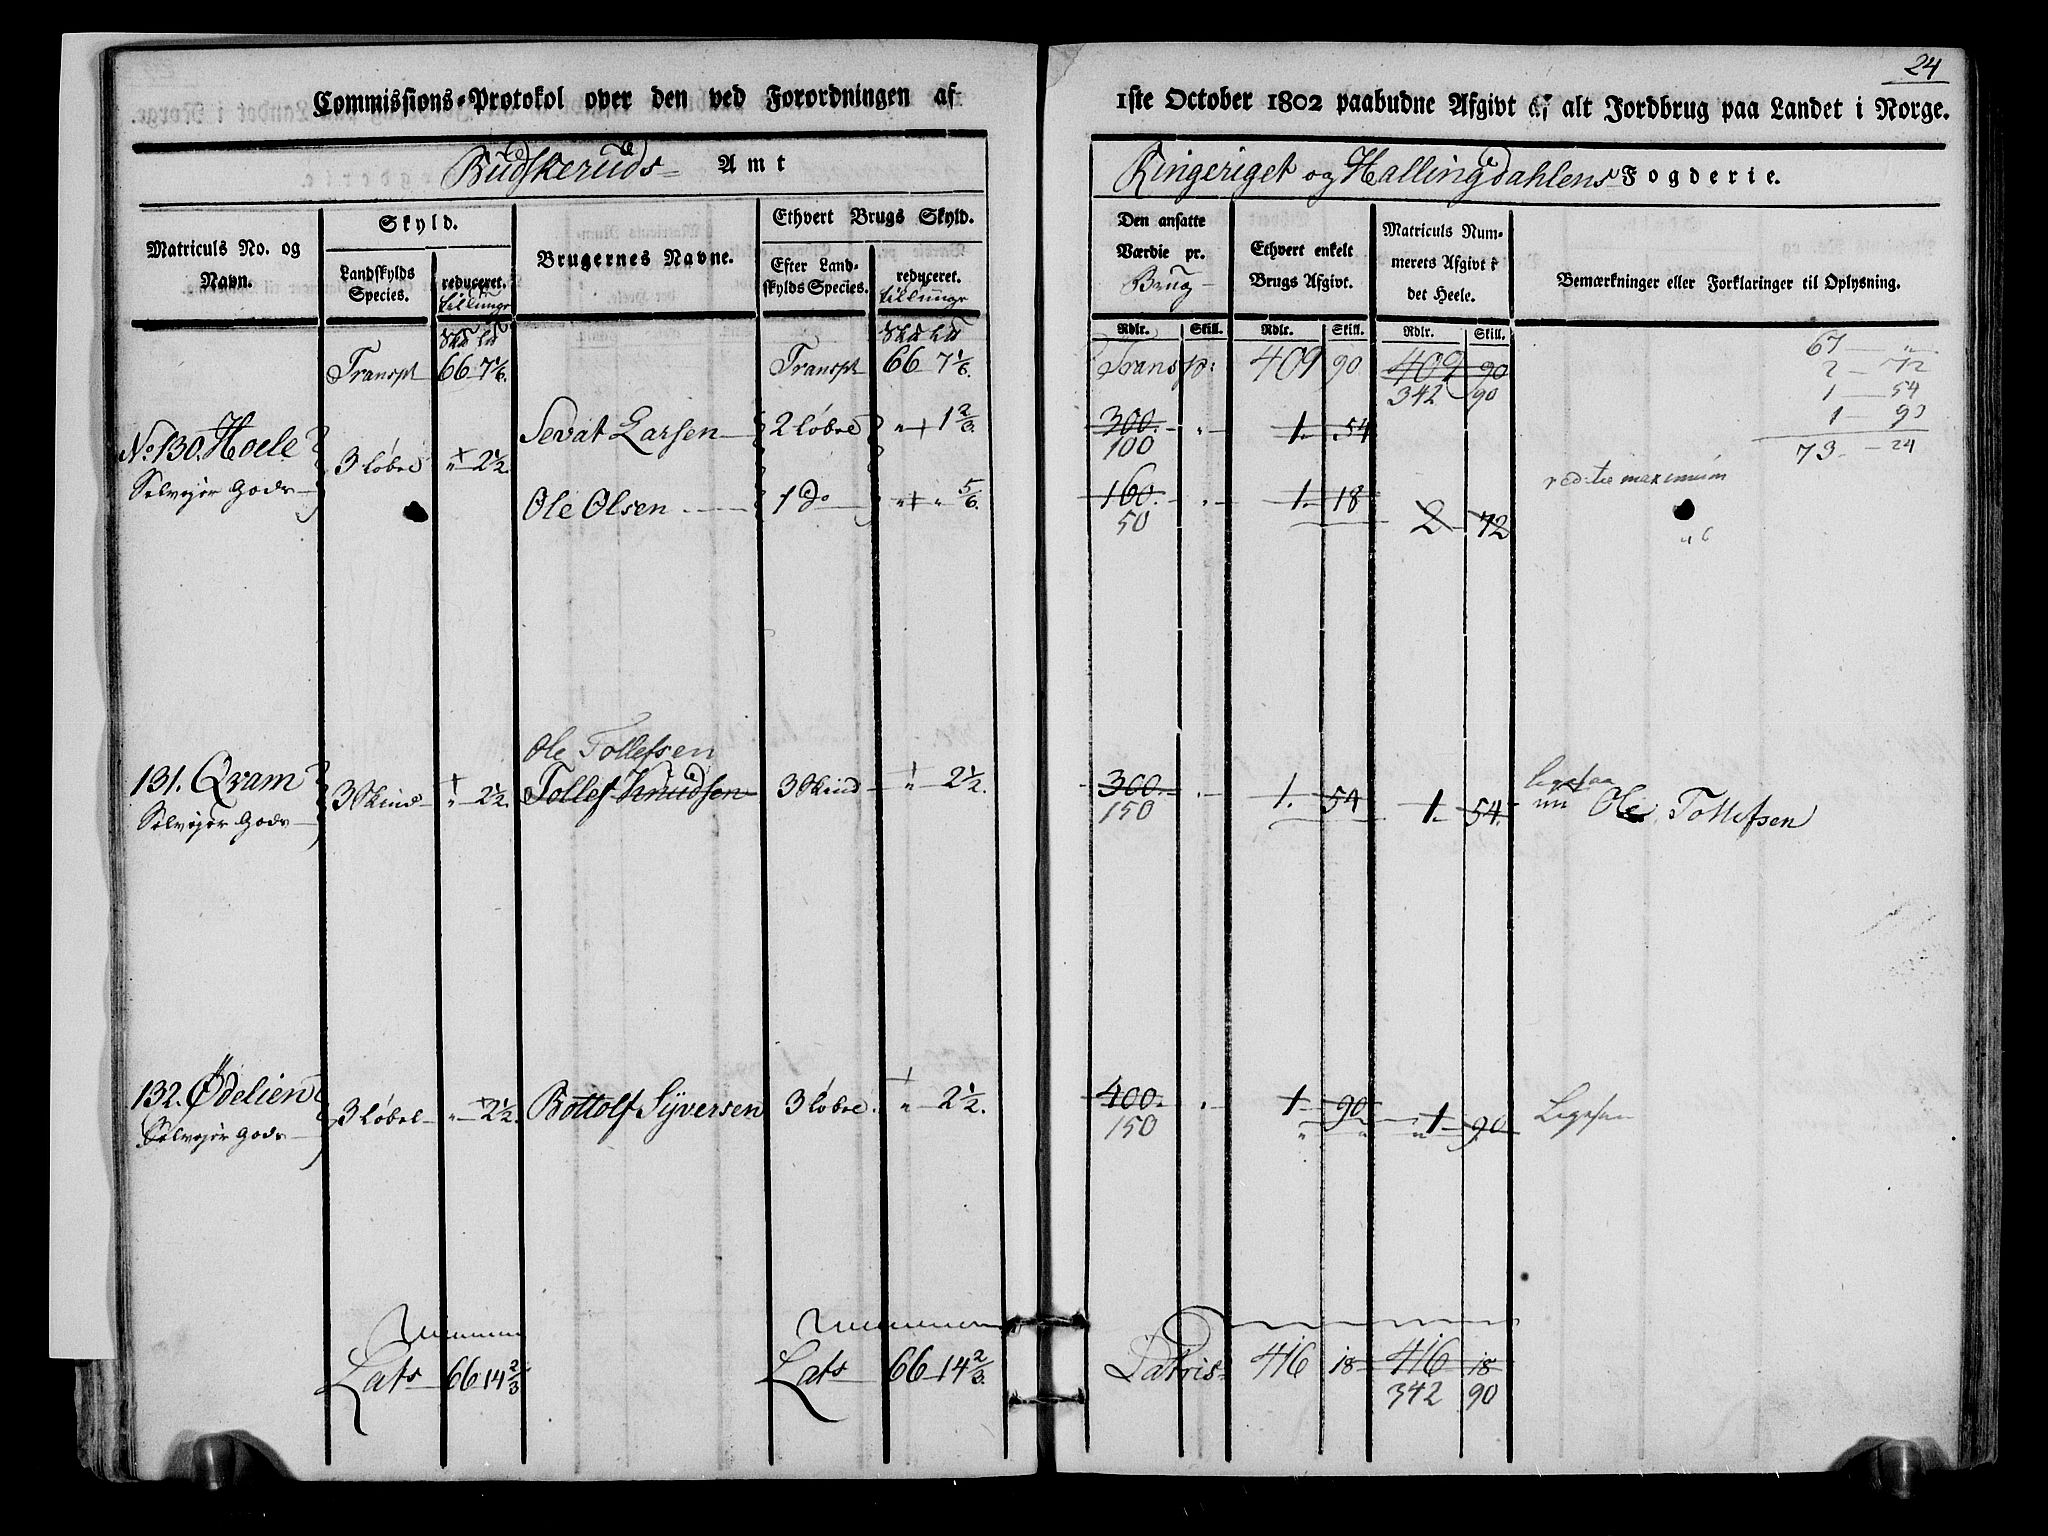 24
Commissions-Protokol over den ved Forordningen af 1ste October 1802 paabudne Afgivt af alt Jordbrug paa Landet i Norge.
Budskeruds Amt
Ringeriget og Hallingdahlens Fogderie.
Matriculs No. og Navn.
Skyld.
Landskylds Species.
reduceret.
Brugernes Navne.
Ethvert Brugs Skyld.
Efter Landskylds Species.
reduceret.
Den ansatte Værdie pr. Brug
Ethvert enkelt Brugs Afgivt.
Matriculs Nummerets Afgivt i det Heele.
Bemærkninger eller Forklaringer til Oplysning.
Rdlr. Skill. Rdlr. Skill. Rdlr. Skill.
Transpt 66 7 1/6. Transpt 66 7 1/6. Transp: 409 90 409 90
342 90
67 — "
2 — 72
1 — 54
1 — 90
73 — 24
No. 130. Hoele 3 Løbe " 2 1/2. Sevat Larsen 2 Løbe " 1 2/3. 300. " 1. 54
100
Selvejer Gods
red: til maximum
Ole Olsen 1 do " " 5/6. 160. " 1. 18 2 72
50
Ole Tollefsen
131. Qvam 3 Skind " 2 1/2. Tollef Knudsen 3 Skind " 2 1/2. 300. " 1. 54 1. 54. nu Ole Tollefsen
150
Selvejer Gods
132. Ødelien 3 Løbe " 2 1/2. Bottolf Syversen 3 Løbe " 2 1/2. 400. " 1 90 1 90
150
Selvejer Gods
Lats 66 14 2/3 Lats 66 14 2/3. Latris 416 18 416 18
342 90